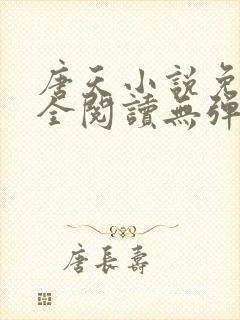 唐天小說免
全閱讀無彈
唐長壽